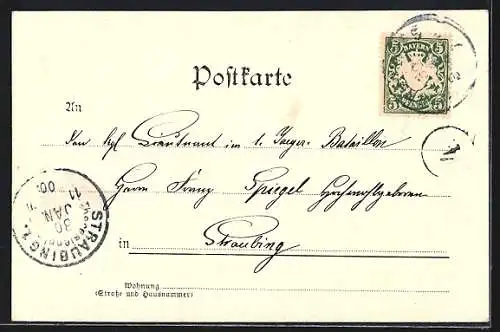 5 BAYERN 5
Postkarte
An
Den kgl Lieutnant im 1. Jaeger-Bataillon
Herrn Franz Spiegel Hochwohlgeboren
in Straubing
STRAUBING
30
JAN.
11
00.
Wohnung
(Straße und Hausnummer)